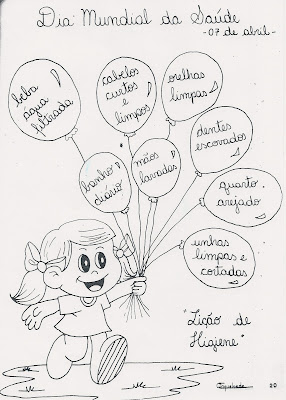 Dia Mundial da Saúde
-07 de abril-
beba
água
filtrada
cabelos
curtos
e
limpos
orelhas
limpas
dentes
escovados
banho
diário
mãos
lavadas
quarto
arejado
unhas
limpas e
cortadas
"Lição de
Higiene"
20